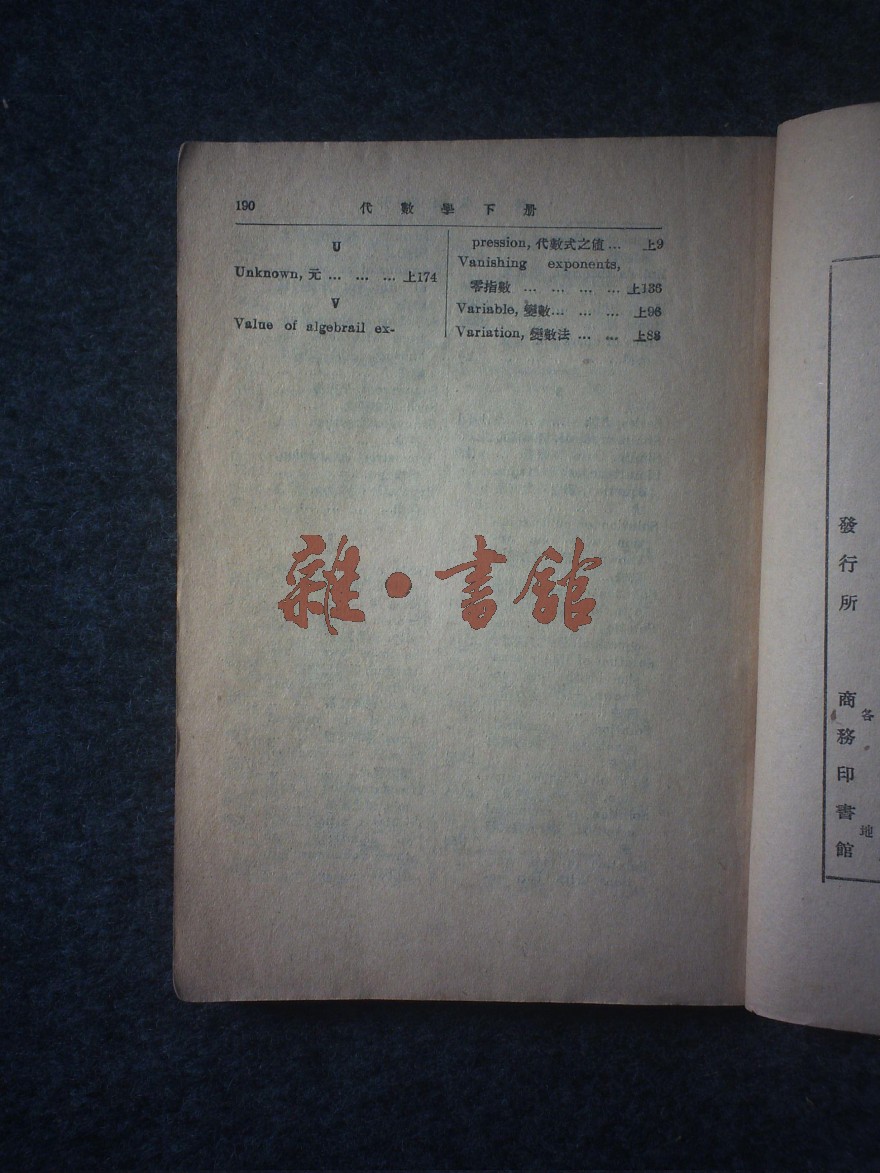 190
代數學下册
U
Unknown, 元 ... ... ... 上174
V
Value of algebrail ex-
pression, 代數式之值 ... 上9
Vanishing exponents,
零指數 ... ... ... ... 上136
Variable, 變數... ... ... 上96
Variation, 變數法 ... ... 上88
雜·書館
發行所 商務印書館
各地